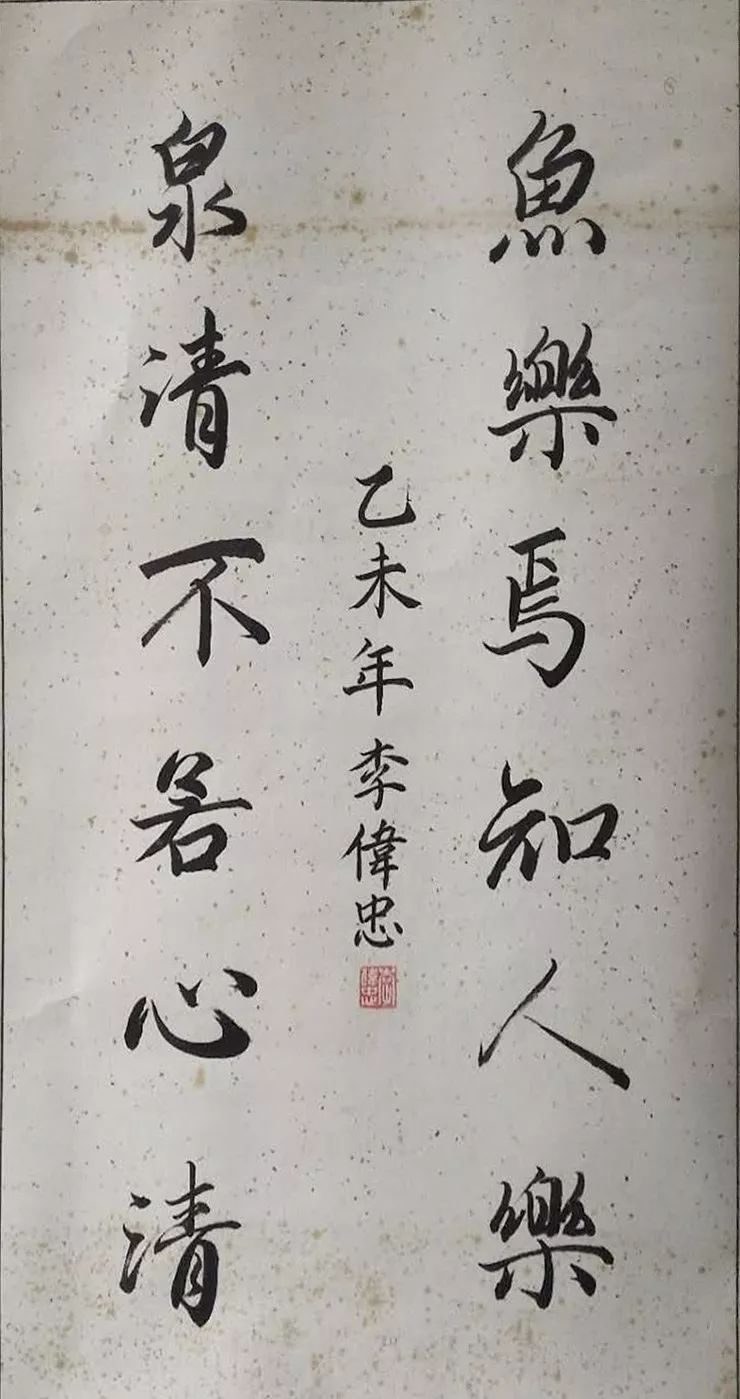 魚樂焉知人樂
泉清不若心清
乙未年李偉忠
李偉忠